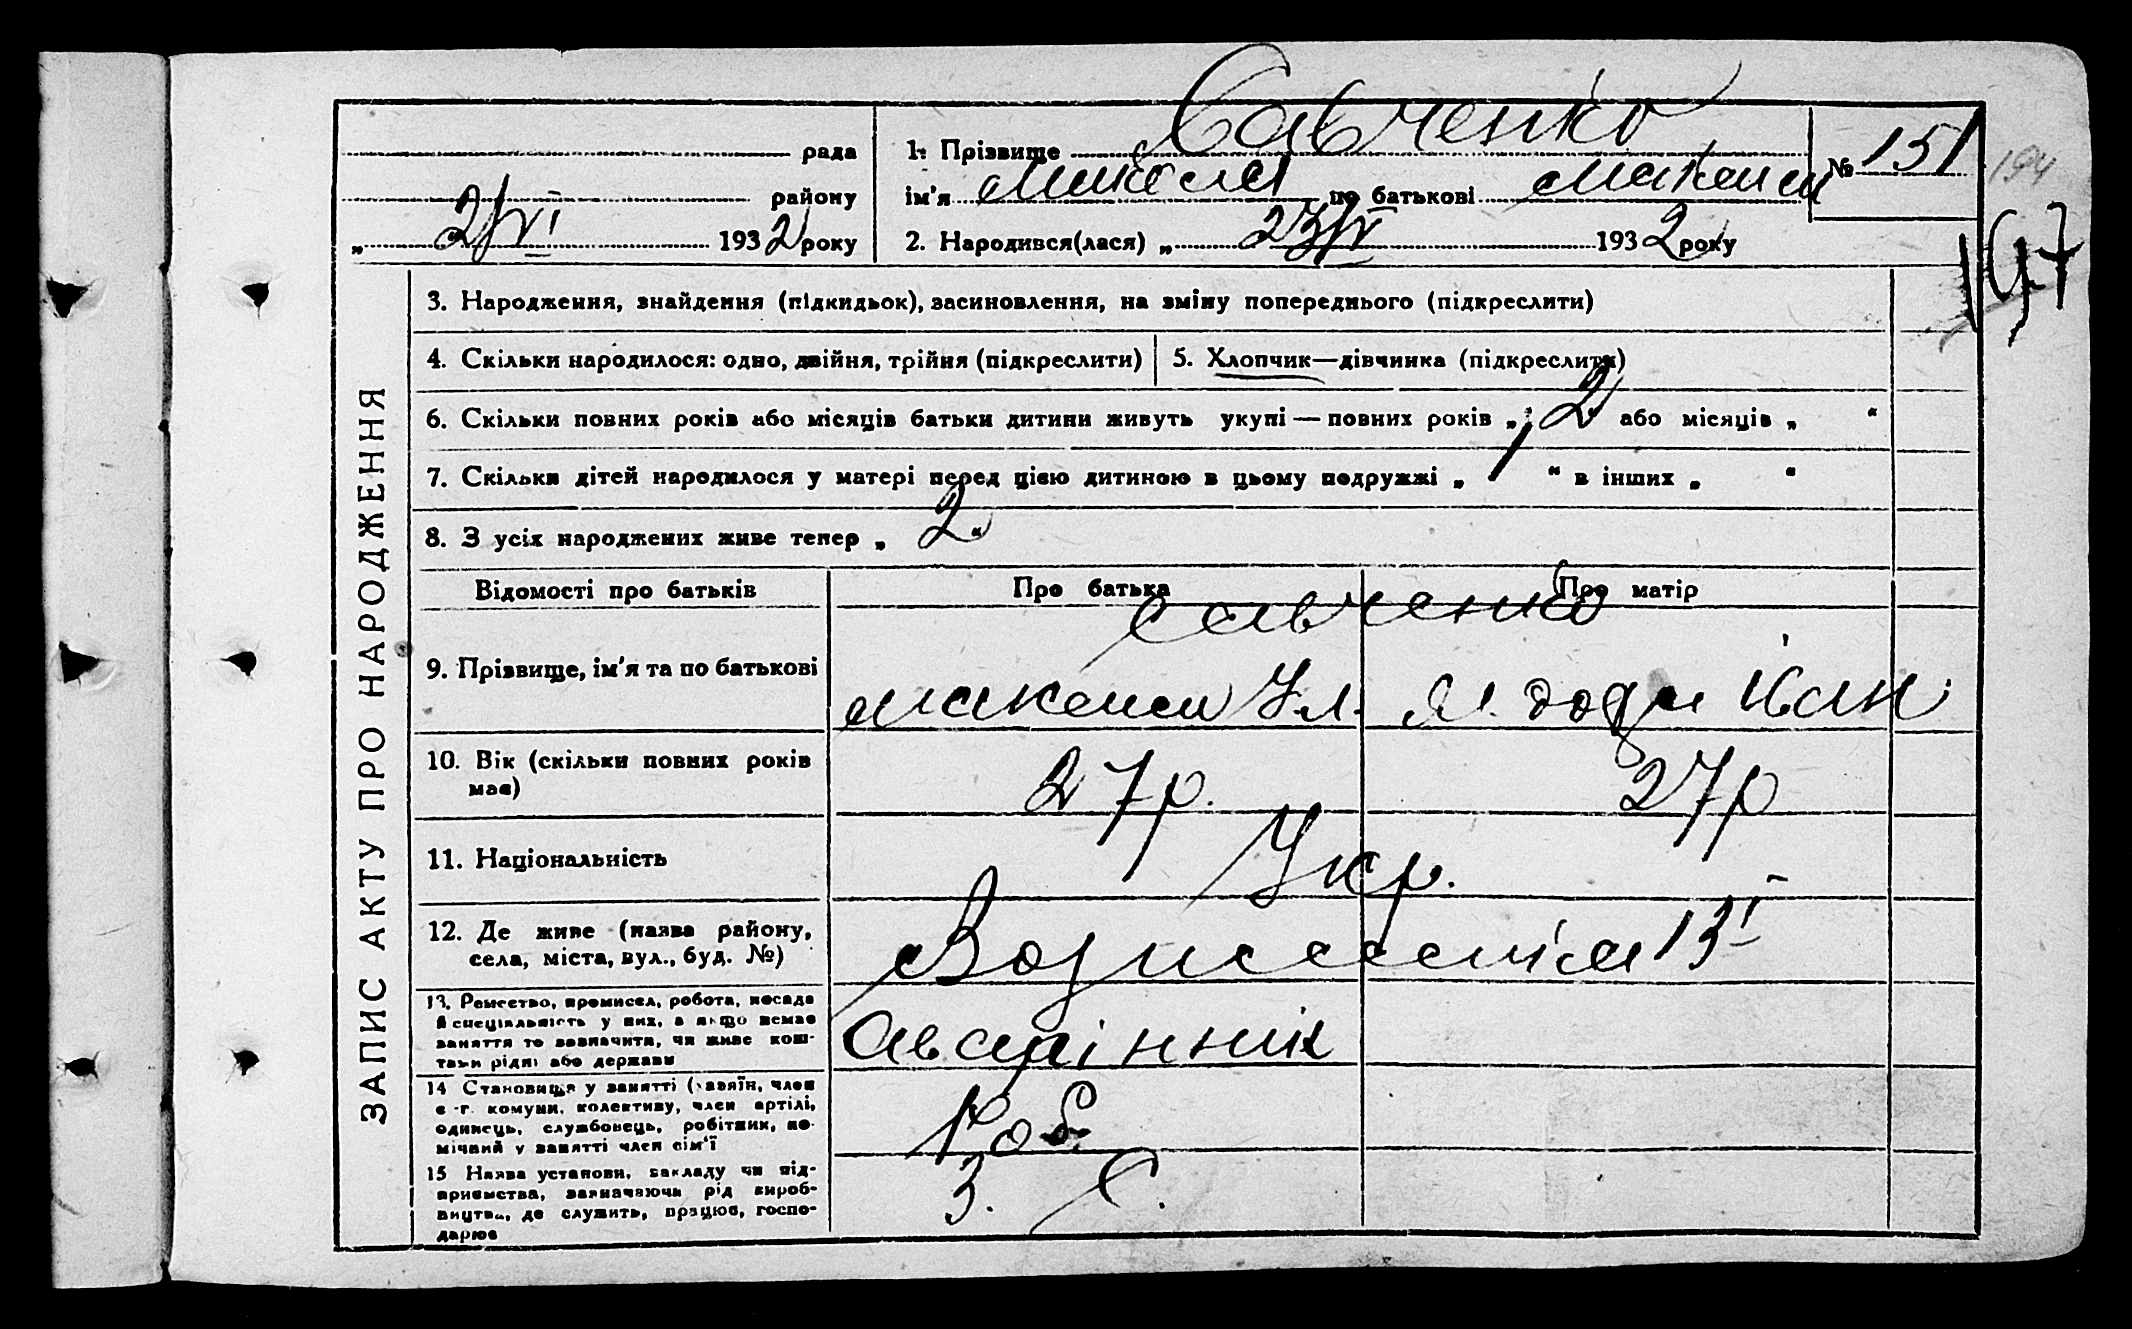 рада
району
„ 2/VI 1932 року
1. Прізвище Савченко
ім'я Микола по батькові Максим
2. Народився(лася) „ 23/V 1932 року
№ 151
194
197
ЗАПИС АКТУ ПРО НАРОДЖЕННЯ
3. Народження, знайдення (підкидьок), засиновлення, на зміну попереднього (підкреслити)
4. Скільки народилося: одно, двійня, трійня (підкреслити)
5. Хлопчик—дівчинка (підкреслити)
6. Скільки повних років або місяців батьки дитини живуть укупі — повних років „ 2 або місяців „ “
7. Скільки дітей народилося у матері перед цією дитиною в цьому подружжі „ 1 “ в інших „ “
8. З усіх народжених живе тепер „ 2 “
Відомості про батьків
Про батька
Про матір
9. Прізвище, ім'я та по батькові
Савченко
Максим Ул.
Іван
10. Вік (скільки повних років має)
27 р.
27 р
11. Національність
Укр.
12. Де живе (назва району,
села, міста, вул., буд. №)
13
13. Ремество, промисел, робота, посада
й спеціальність у них, а якщо немає
заняття то зазначити, чи живе кош-
тами рідні або держави
Аварінник
14 Становище у занятті (хазяїн, член
с.-г. комуни, колективу, член артілі,
одинець, службовець, робітник, по-
мічний у занятті член сім'ї
Роб.
15 Назва установи, закладу чи під-
приємства, зазначаючи рід вироб-
ництва, де служить, працює, госпо-
дарює
З. С.